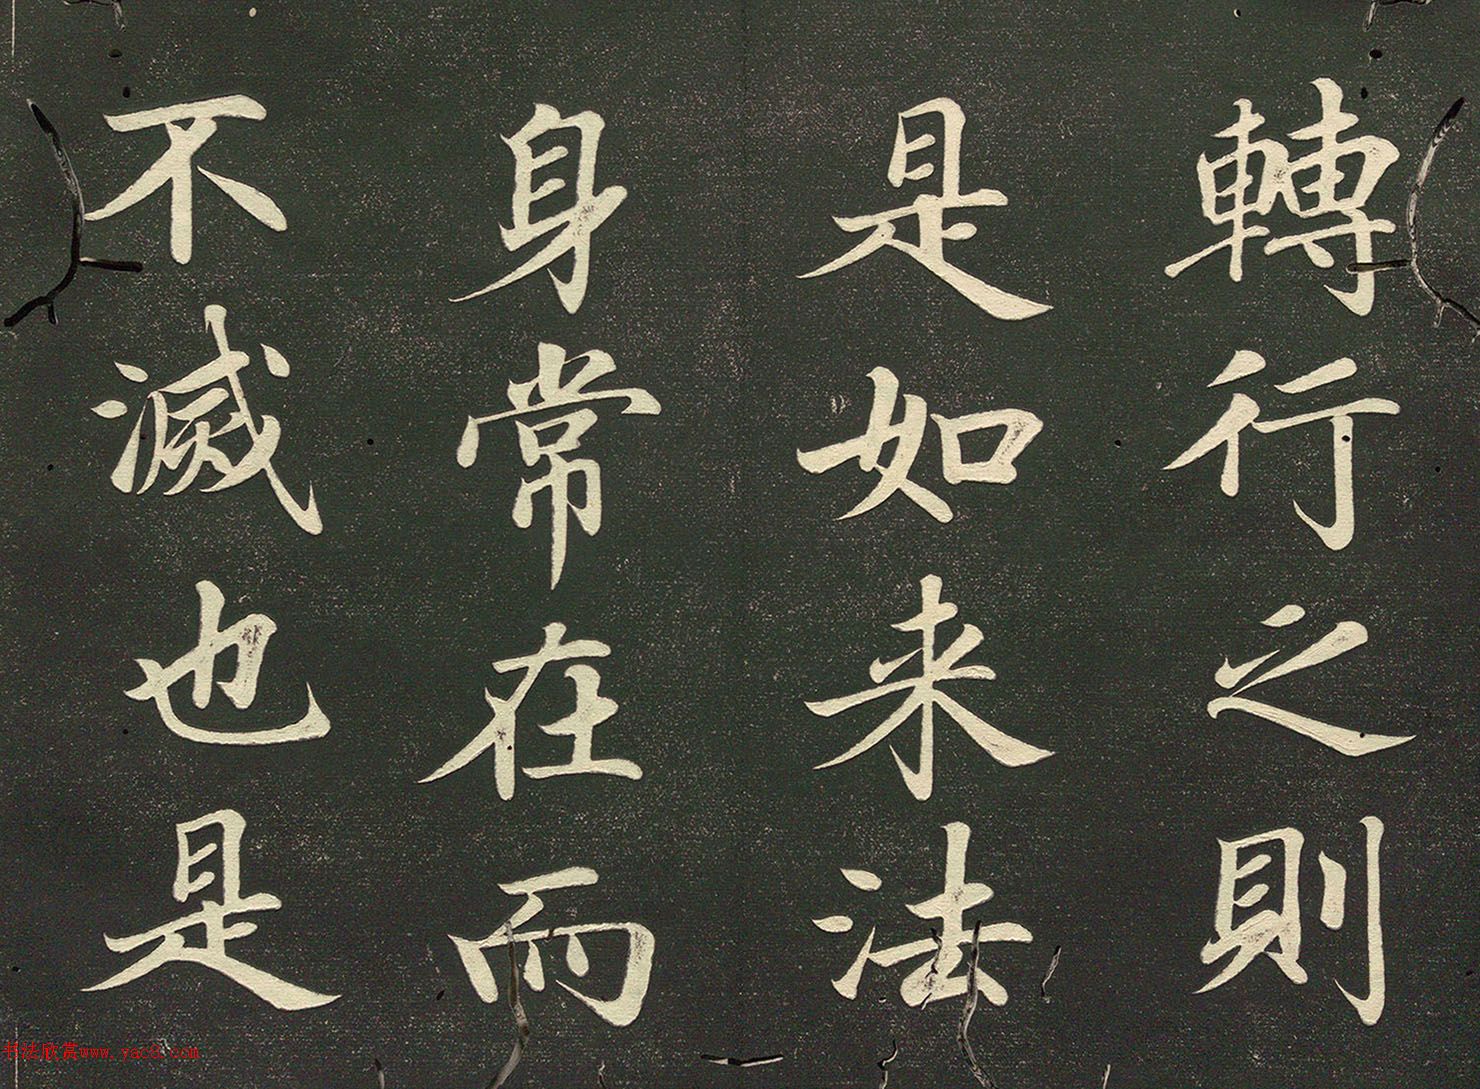 轉行之則
是如来法
身常在而
不滅也是
书法欣赏www.yac8.com